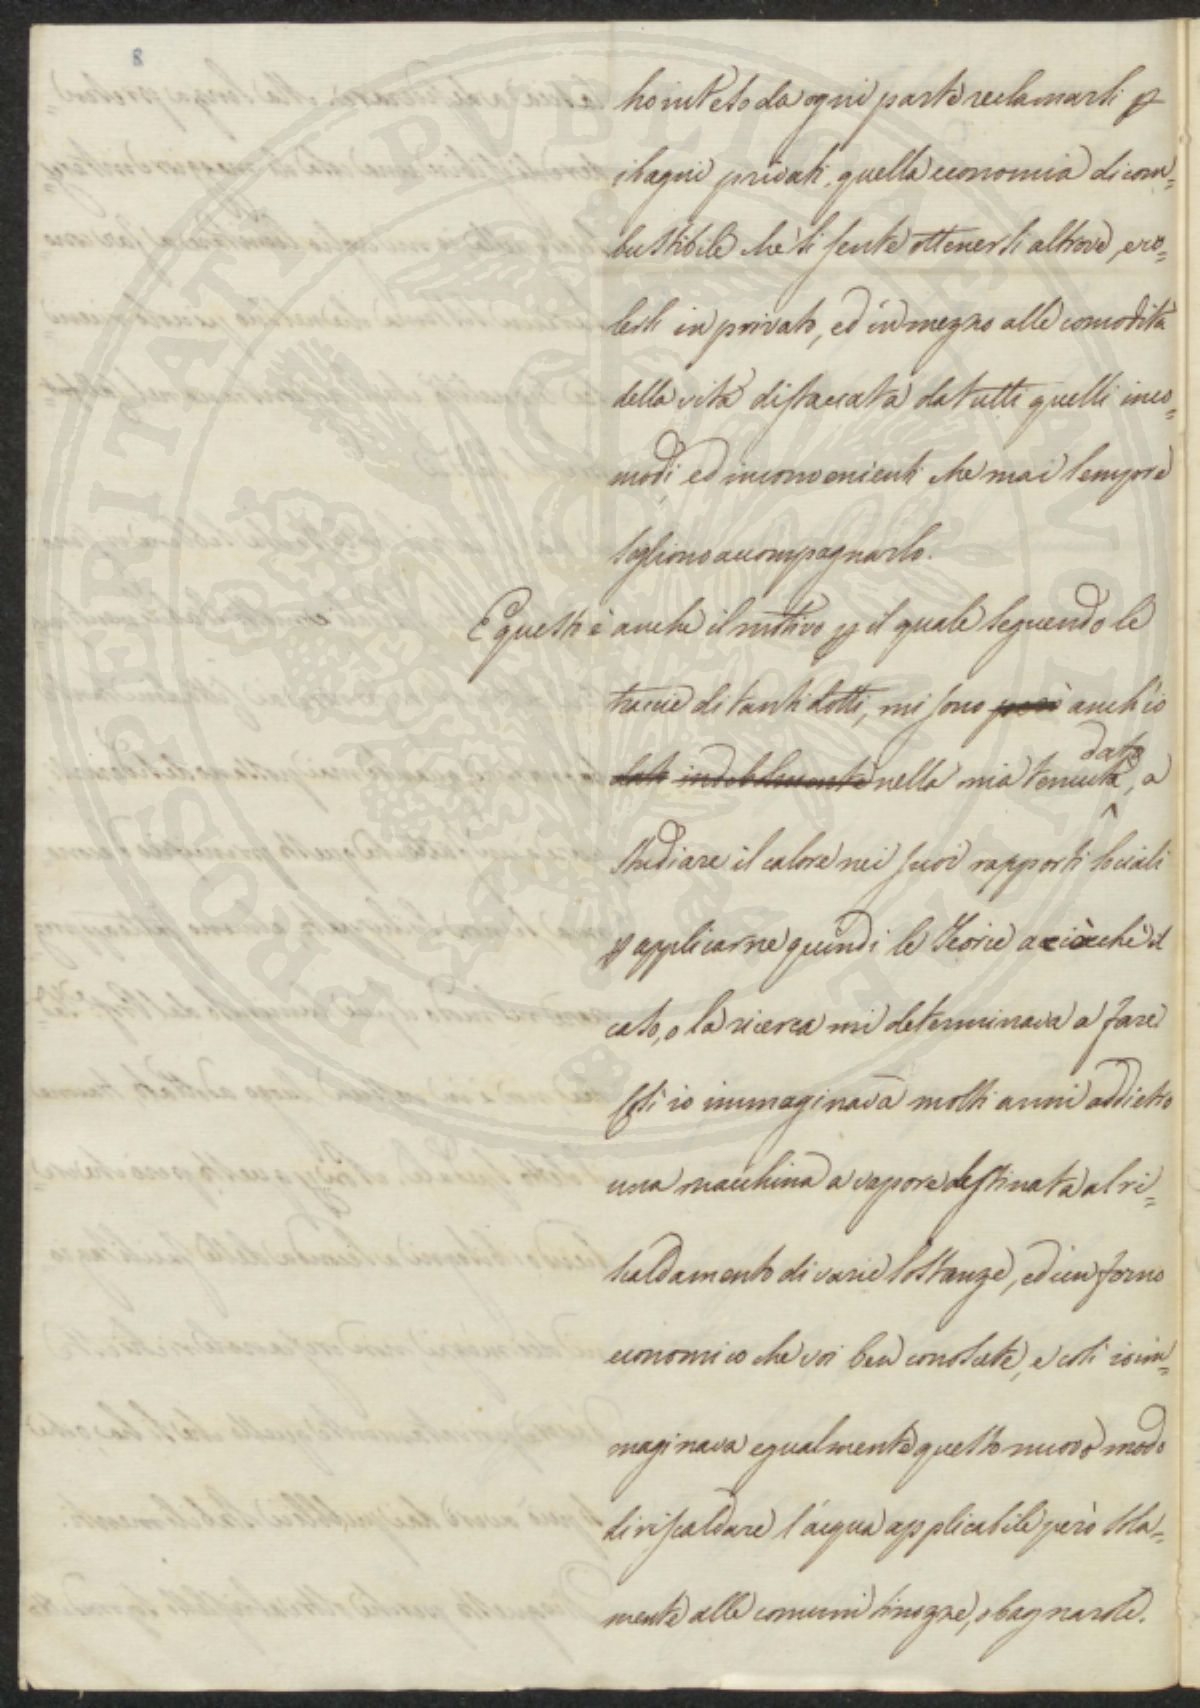 8
ho inteso da ogni parte reclamarsi p
i bagni privati, quella economia di com=
bustibile che si sente ottenersi altrove, e co=
lesti in privato, ed in mezzo alle comodità
della vita distaccata da tutti quelli inco=
modi, ed inconvenienti che mai sempre
sogliono accompagnarlo.
E questi è anche il motivo p il quale seguendo le
traccie di tanti dotti, mi sono però anch'io
dato indebolmente nella mia tenuità, a
dato
studiare il calore nei suoi rapporti sociali
p applicarne quindi le Teorie a ciò che il
caso, o la ricerca mi determinava a fare
Così io immaginava molti anni addietro
una macchina a vapore destinata al ri=
scaldamento di varie sostanze, ed un forno
economico che voi ben conoscete, e così io im=
maginava egualmente questo nuovo modo
di riscaldare l'acqua applicabile però sola=
mente alle comuni tinozze, o bagnarole.
PROSPERITATI PUBLICAE